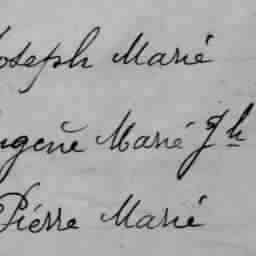 Joseph Marié
Eugène Marié Jh
Piérre Marié